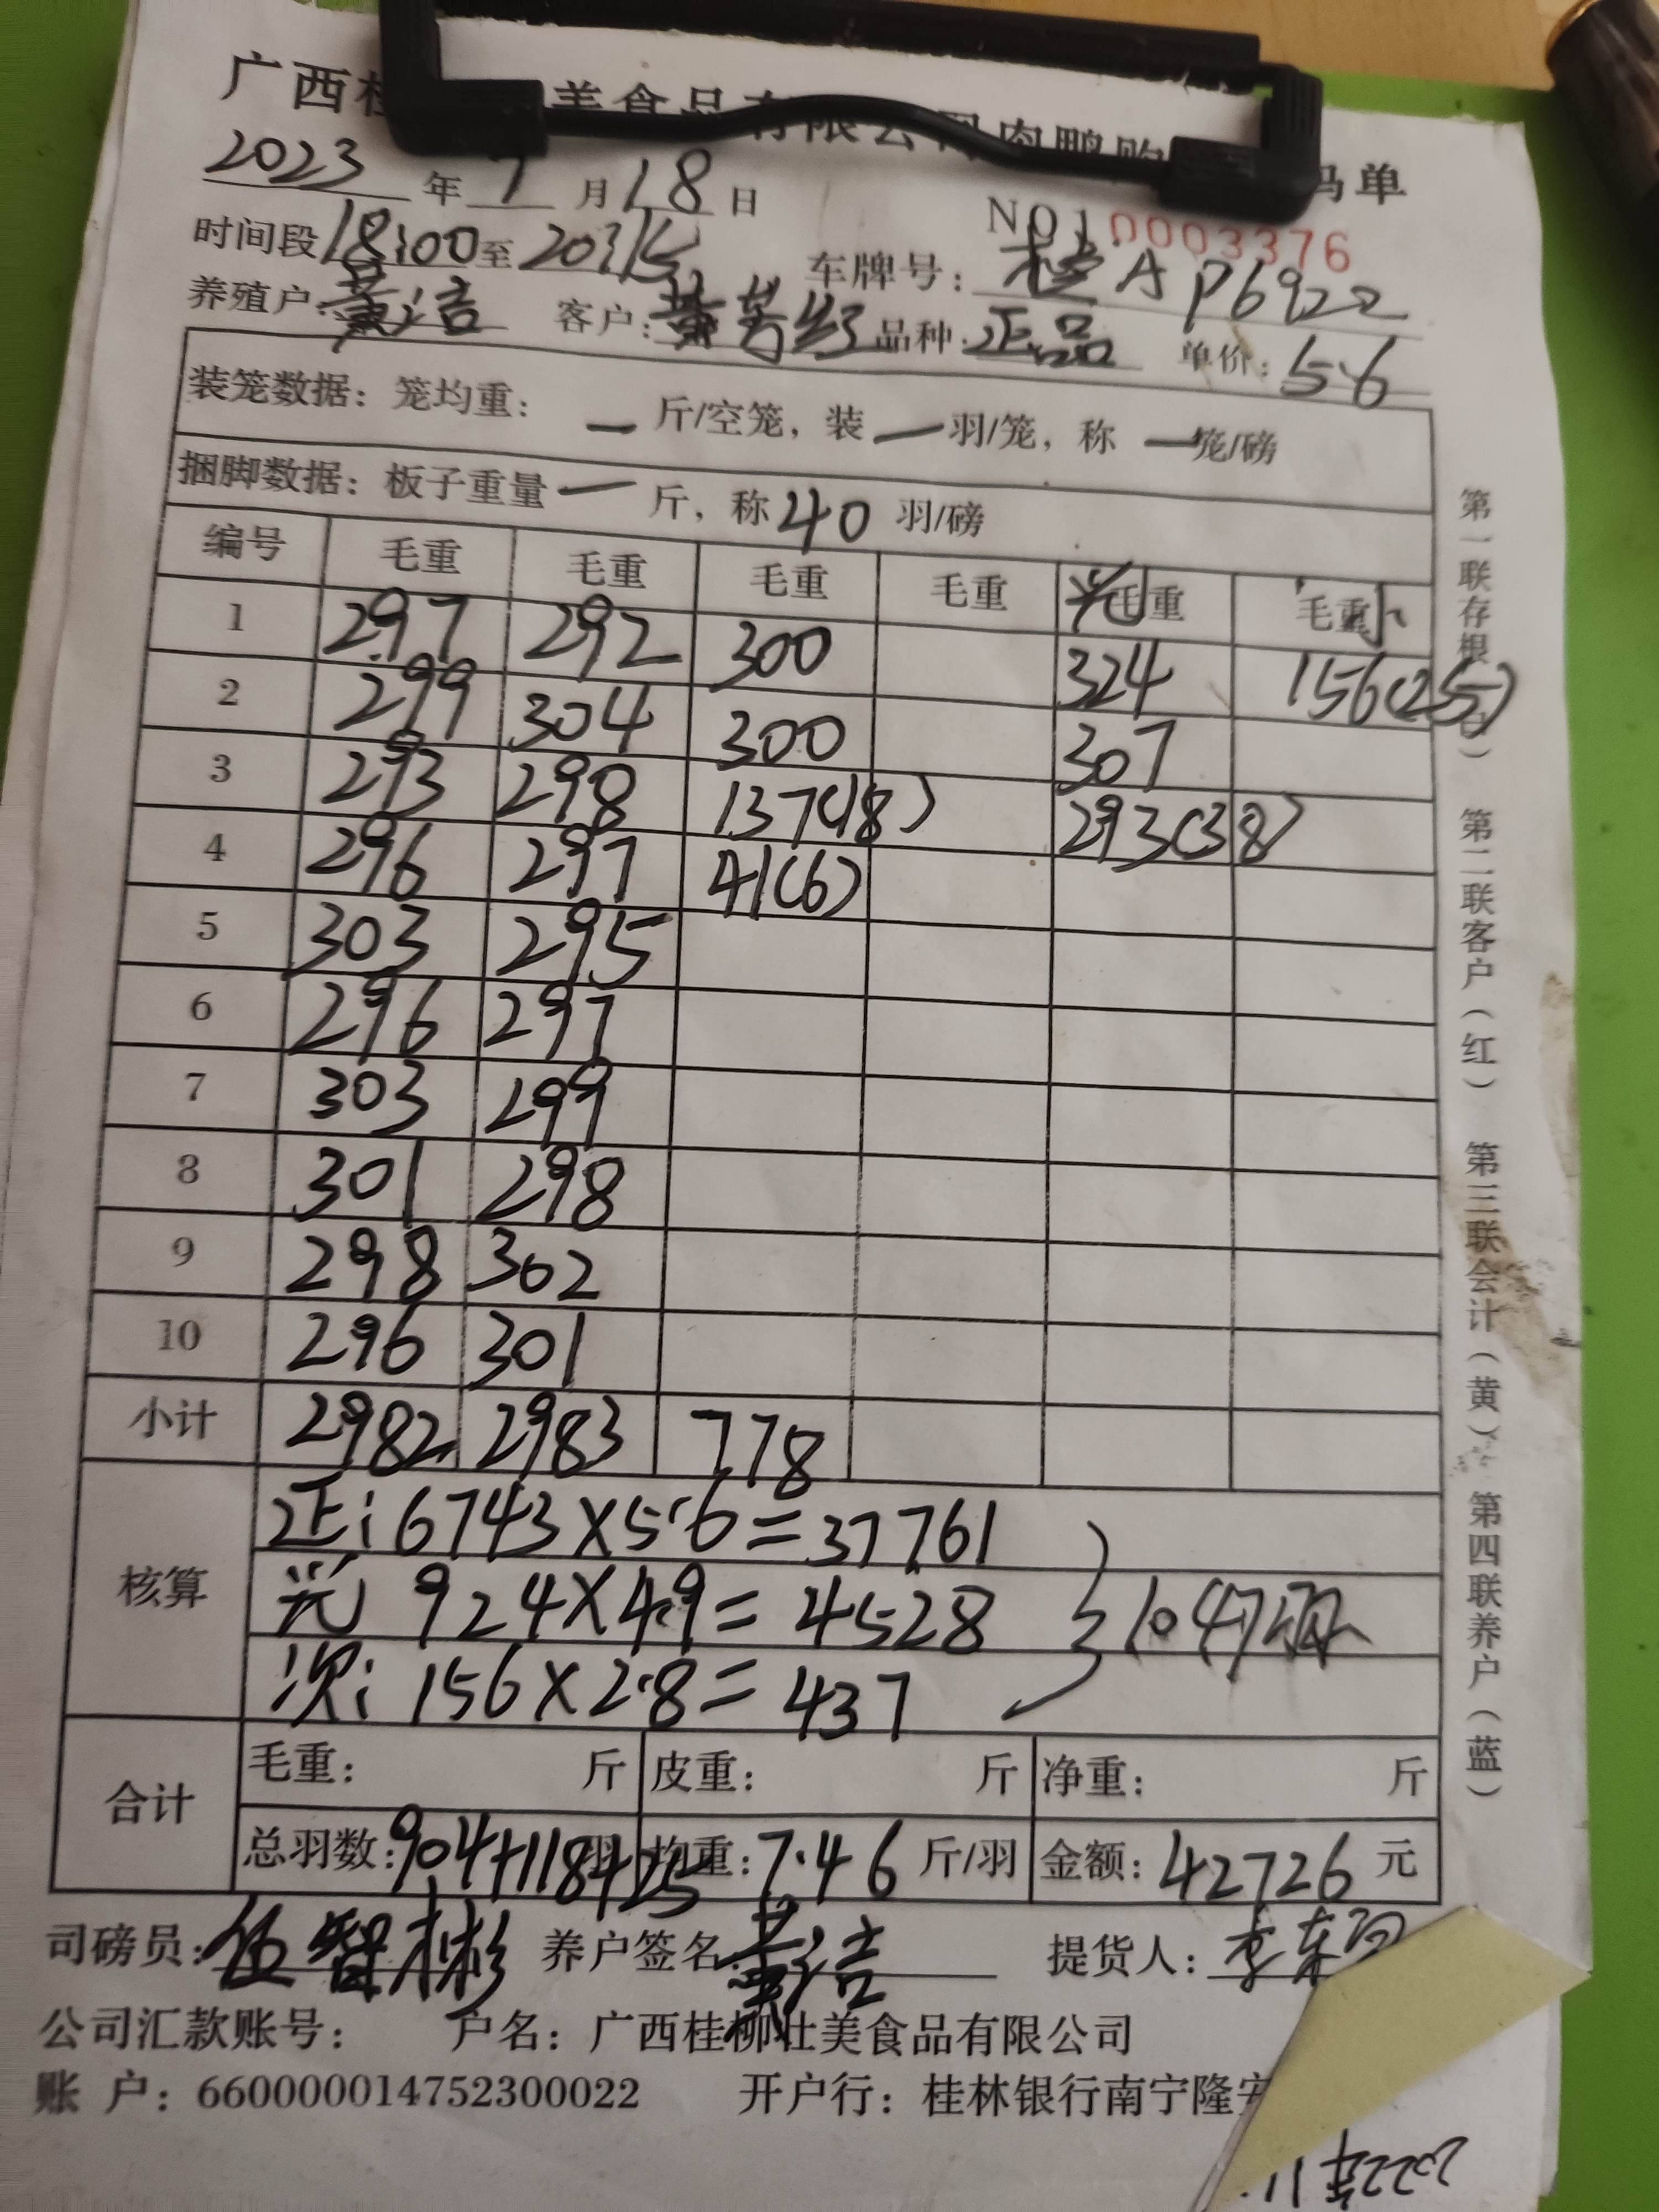 广西桂 美食品有限公司肉鸭购 码单
2023年7月18日
NO10003376
时间段18:00至20:15 车牌号：桂A P6922
养殖户:黄洁 客户:黄芳红 品种:正品 单价:5.6
装笼数据：笼均重： — 斤/空笼，装 — 羽/笼，称 — 笼/磅
捆脚数据：板子重量 — 斤，称 40 羽/磅
编号 毛重 毛重 毛重 毛重 光毛重 毛重小
1 297 292 300 324 156(25)
2 299 304 300 307
3 293 298 137(18) 293(38)
4 296 297 41(6)
5 303 295
6 296 297
7 303 299
8 301 298
9 298 302
10 296 301
小计 2982 2983 778
核算
正:6743×5.6=37761
光 924×4.9=4528 1047羽
次:156×2.8=437
合计 毛重： 斤 皮重： 斤 净重： 斤
总羽数:904+118+25羽 均重:7.46斤/羽 金额:42726元
司磅员:伍智彬 养户签名:黄洁 提货人:李东
公司汇款账号： 户名：广西桂柳壮美食品有限公司
账 户：660000014752300022 开户行：桂林银行南宁隆安
第一联存根（白） 第二联客户（红） 第三联会计（黄） 第四联养户（蓝）